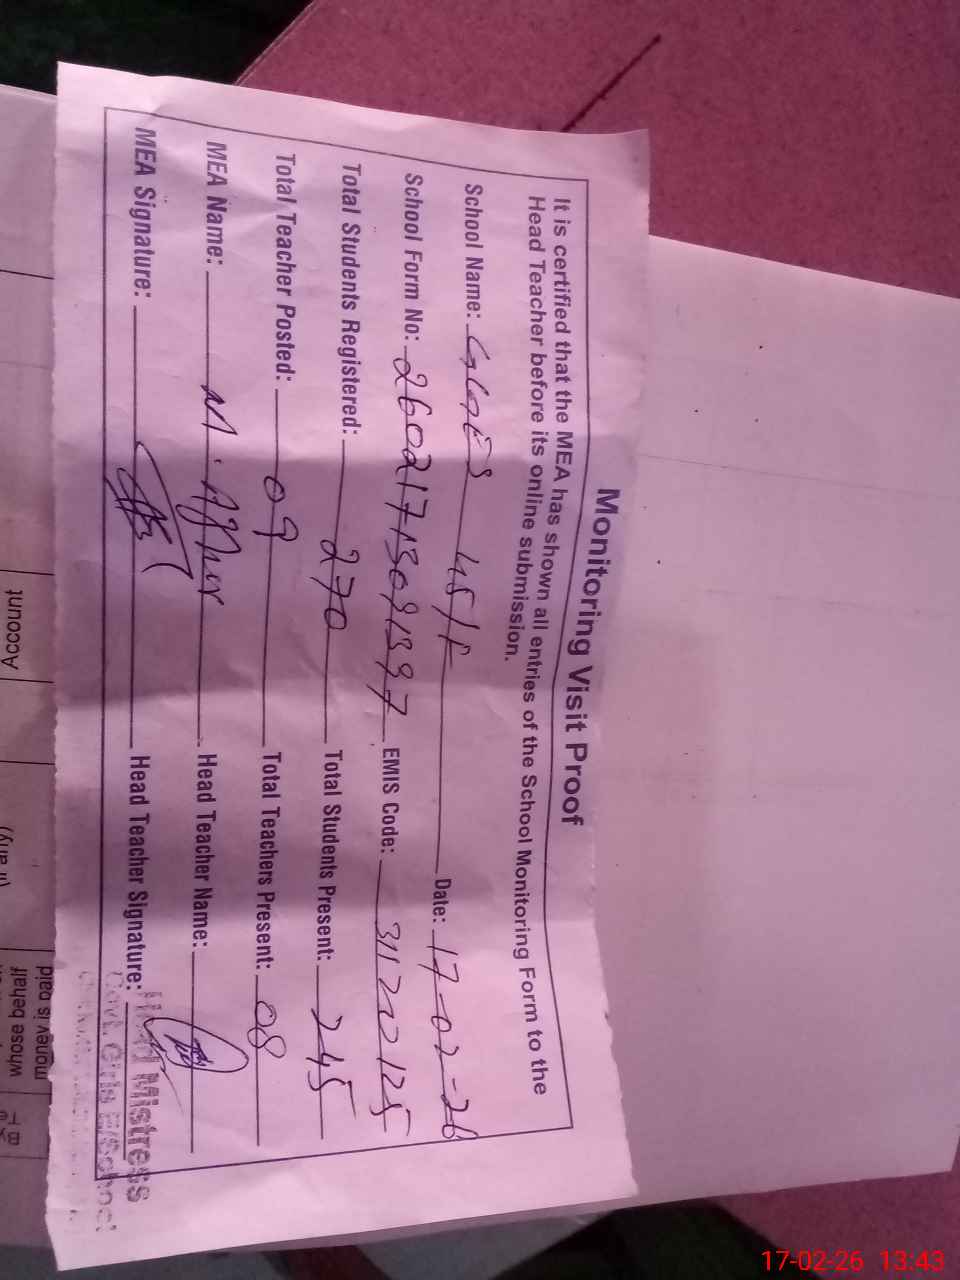 Monitoring Visit Proof
It is certified that the MEA has shown all entries of the School Monitoring Form to the
Head Teacher before its online submission.
School Name: GGES 45/F Date: 17-02-26
School Form No: 26021713091397 EMIS Code: 31120125
Total Students Registered: 270 Total Students Present: 245
Total Teacher Posted: 09 Total Teachers Present: 08
MEA Name: M. Head Teacher Name:
MEA Signature: Head Teacher Signature:
Head Mistress
Govt. Girls E/School
Account
whose behalf
money is paid
17-02-26 13:43